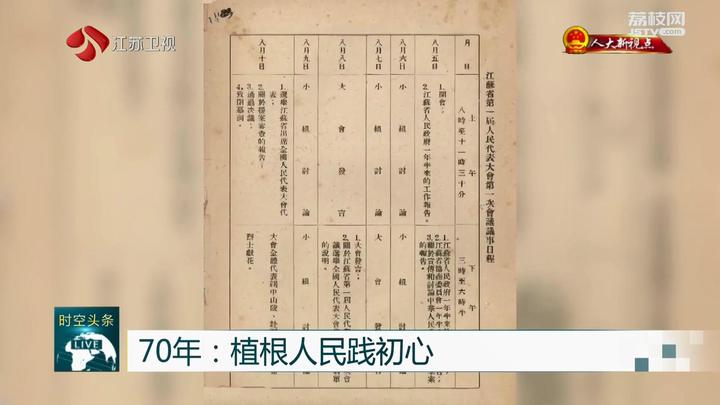 江苏卫视
荔枝网
JSTV.COM
人大新视点
江蘇省第一屆人民代表大會第一次會議議事日程
月日
上午
八時至十一時三十分
下午
三時至六時半
八月五日
1.開會；
2.江蘇省人民政府一年半來的工作報告。
1.江蘇省人民政府一年半來
2.江蘇省協商委員會一年半
3.關於宣傳和討論中華人民
草案
的報告。
八月六日
小組討論
小組討
八月七日
小組討論
大會發
八月八日
大會發言
1.大會發言；
2.關於江蘇省第一屆人民代
議選舉全國人民代表大會
的說明。
八月九日
小組討論
小組討
八月十日
1.選舉江蘇省出席全國人民代表大會代
表；
2.關於提案審查的報告；
3.通過決議；
4.致閉幕詞。
大會全體代表謁中山陵、
烈士獻花。
时空头条
LIVE
70年：植根人民践初心